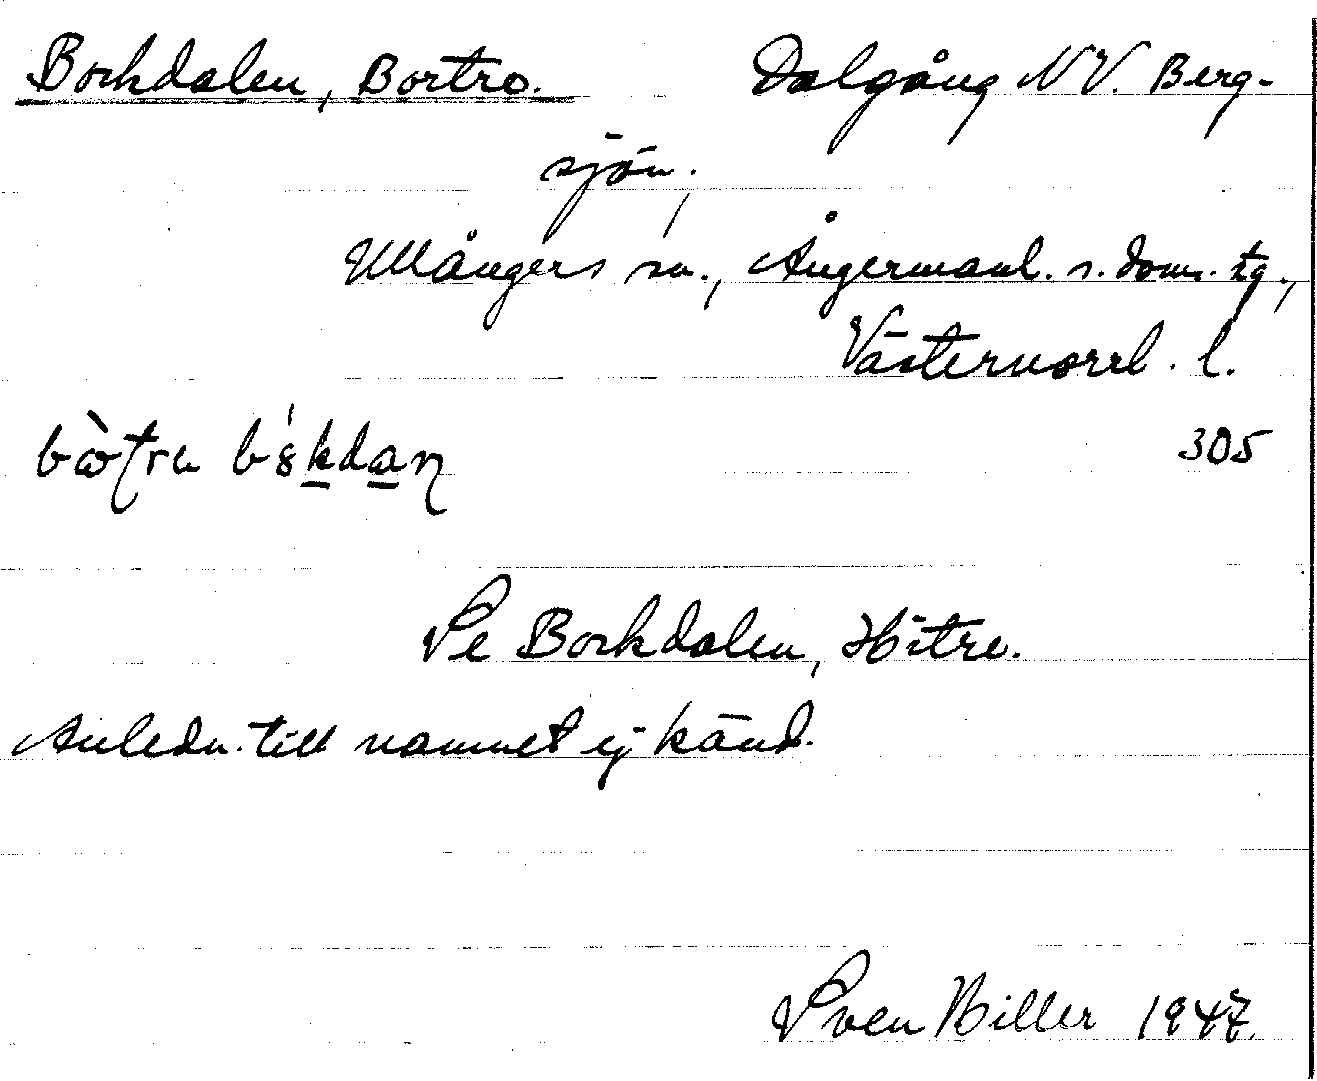 Bockdalen, Bortre. Dalgång NV. Berg-
sjön,
Ullångers sn., Ångermanl. s. doms. tg.,
Västernorrl. l.
305
Se Bockdalen, Hitre.
Anledn. till namnet ej känd.
Sven Hiller 1947.